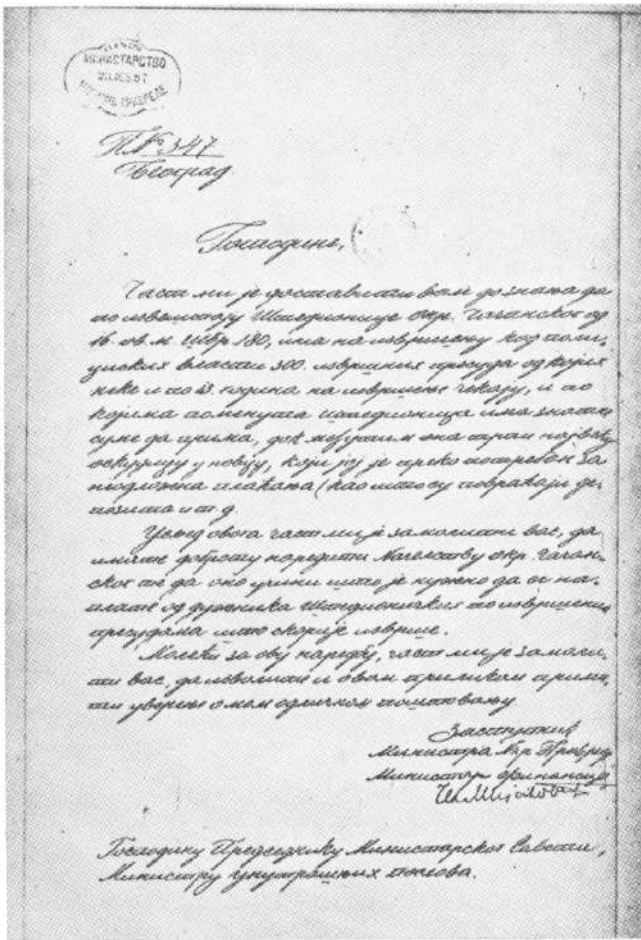 МИНИСТАРСТВО
П№ 347
Београд
Господине,
Част ми је доставити вам до знања да
по извештају Штедионице окр. Чачанског од
16. ов. м. Шбр 180, има на извршењу код поли-
цијских власти 300. извршних пресуда од којих
неке и по година на извршење чекају, и по
којима поменута штедионица има знатне
суме да прима, док међутим она трпи највећу
оскудицу у новцу, који јој је преко потребан за
неодложна плаћања (као што су повраћаји де-
позита и т. д.
Услед овога част ми је замолити вас, да
имате доброту наредити Начелству окр. Чачан-
ског те да оно учини што је нужно да се на-
плате од дужника Штедионичких по извршним
пресудама што скорије изврше.
Молећи за ову наредбу, част ми је замоли-
ти вас, да изволите и овом приликом прими-
ти уверење о мом одличном поштовању
Заступник
Министра Нар. Привред
Министар финансија
Чед. Мијатовић
Господину Председнику Министарског Савета,
Министру унутрашњих послова.